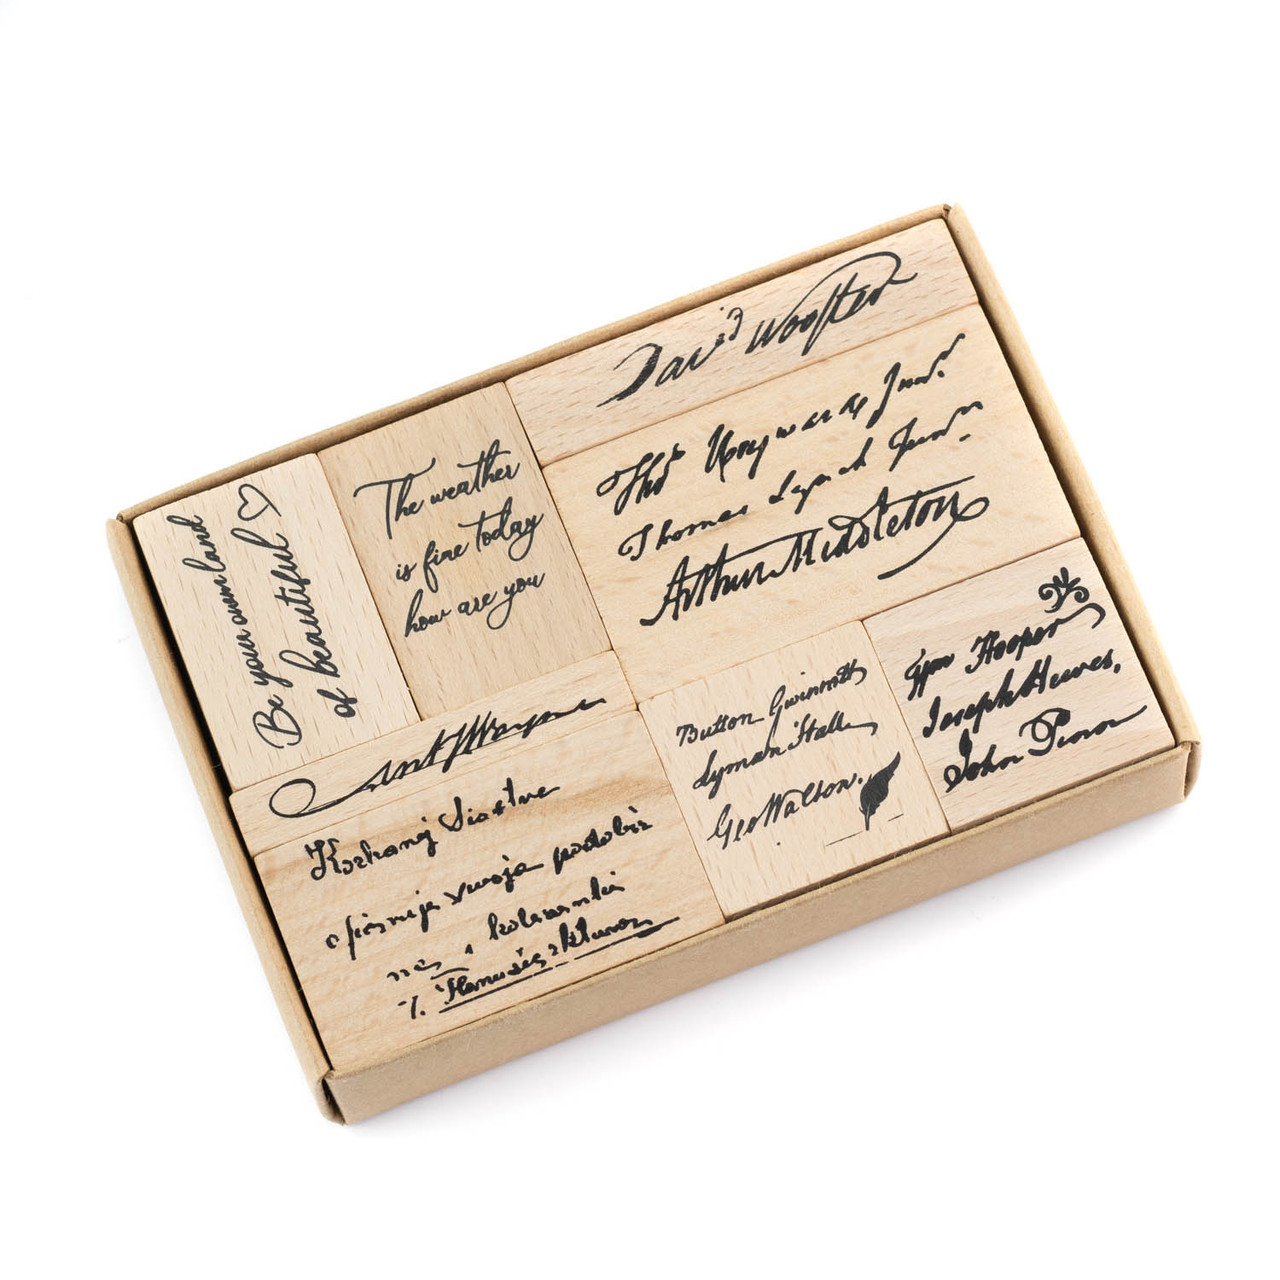 David Wooster
The weather
is fine today
how are you
Be your own land
of beautiful
Thos Heyward Junr.
Thomas Lynch Junr.
Arthur Middleton
Ant Wayne
Kochanej Siostrze
ofiaruje swoja podobiz
nę,
Button Gwinnett
Lyman Hall
Geo Walton.
Wm Hooper
Joseph Hewes,
John Penn